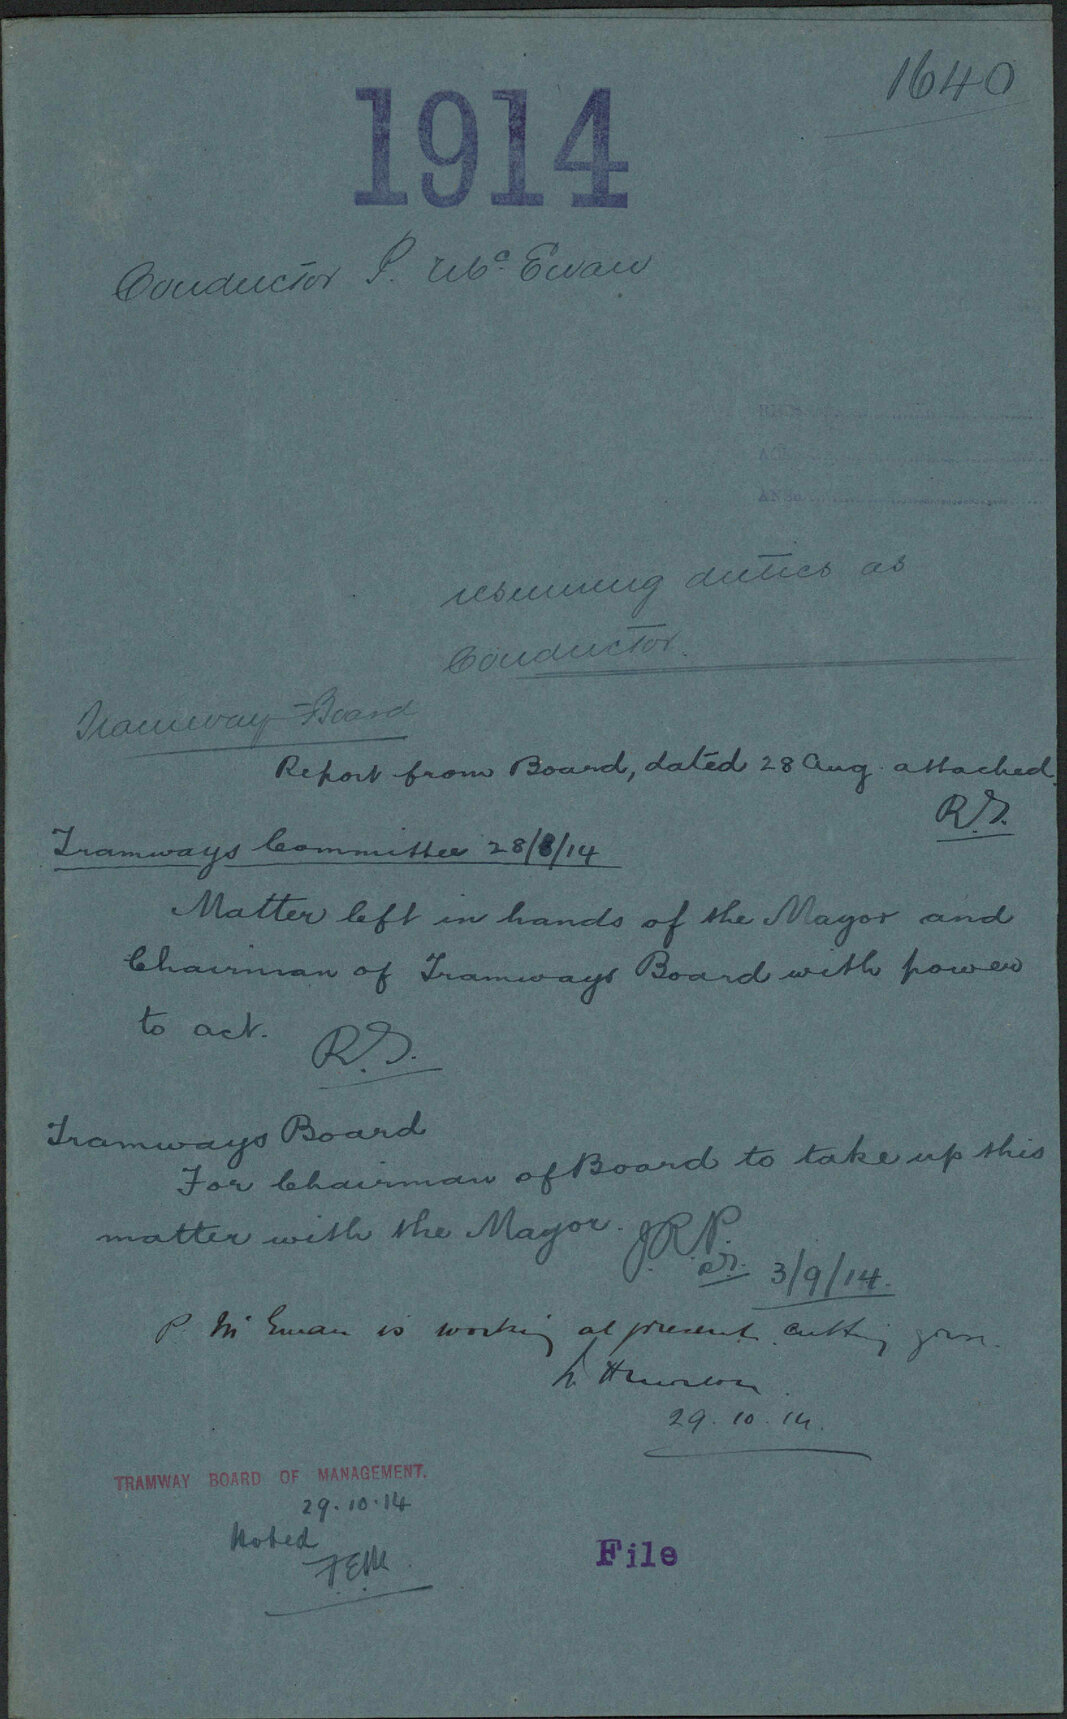 1640
1914
Conductor P. McEwan
Rec
Ack
Ans
resuming duties as
Conductor.
Tramway Board
Report from Board, dated 28 Aug. attached.
R.S.
Tramways Committee 28/8/14
Matter left in hands of the Mayor and
Chairman of Tramways Board with power
to act. R.S.
Tramways Board
For Chairman of Board to take up this
matter with the Mayor. J.R.P.
3/9/14.
P. McEwan is working at present cutting
29.10.14.
TRAMWAY BOARD OF MANAGEMENT.
29.10.14
Noted
F.E.M.
File